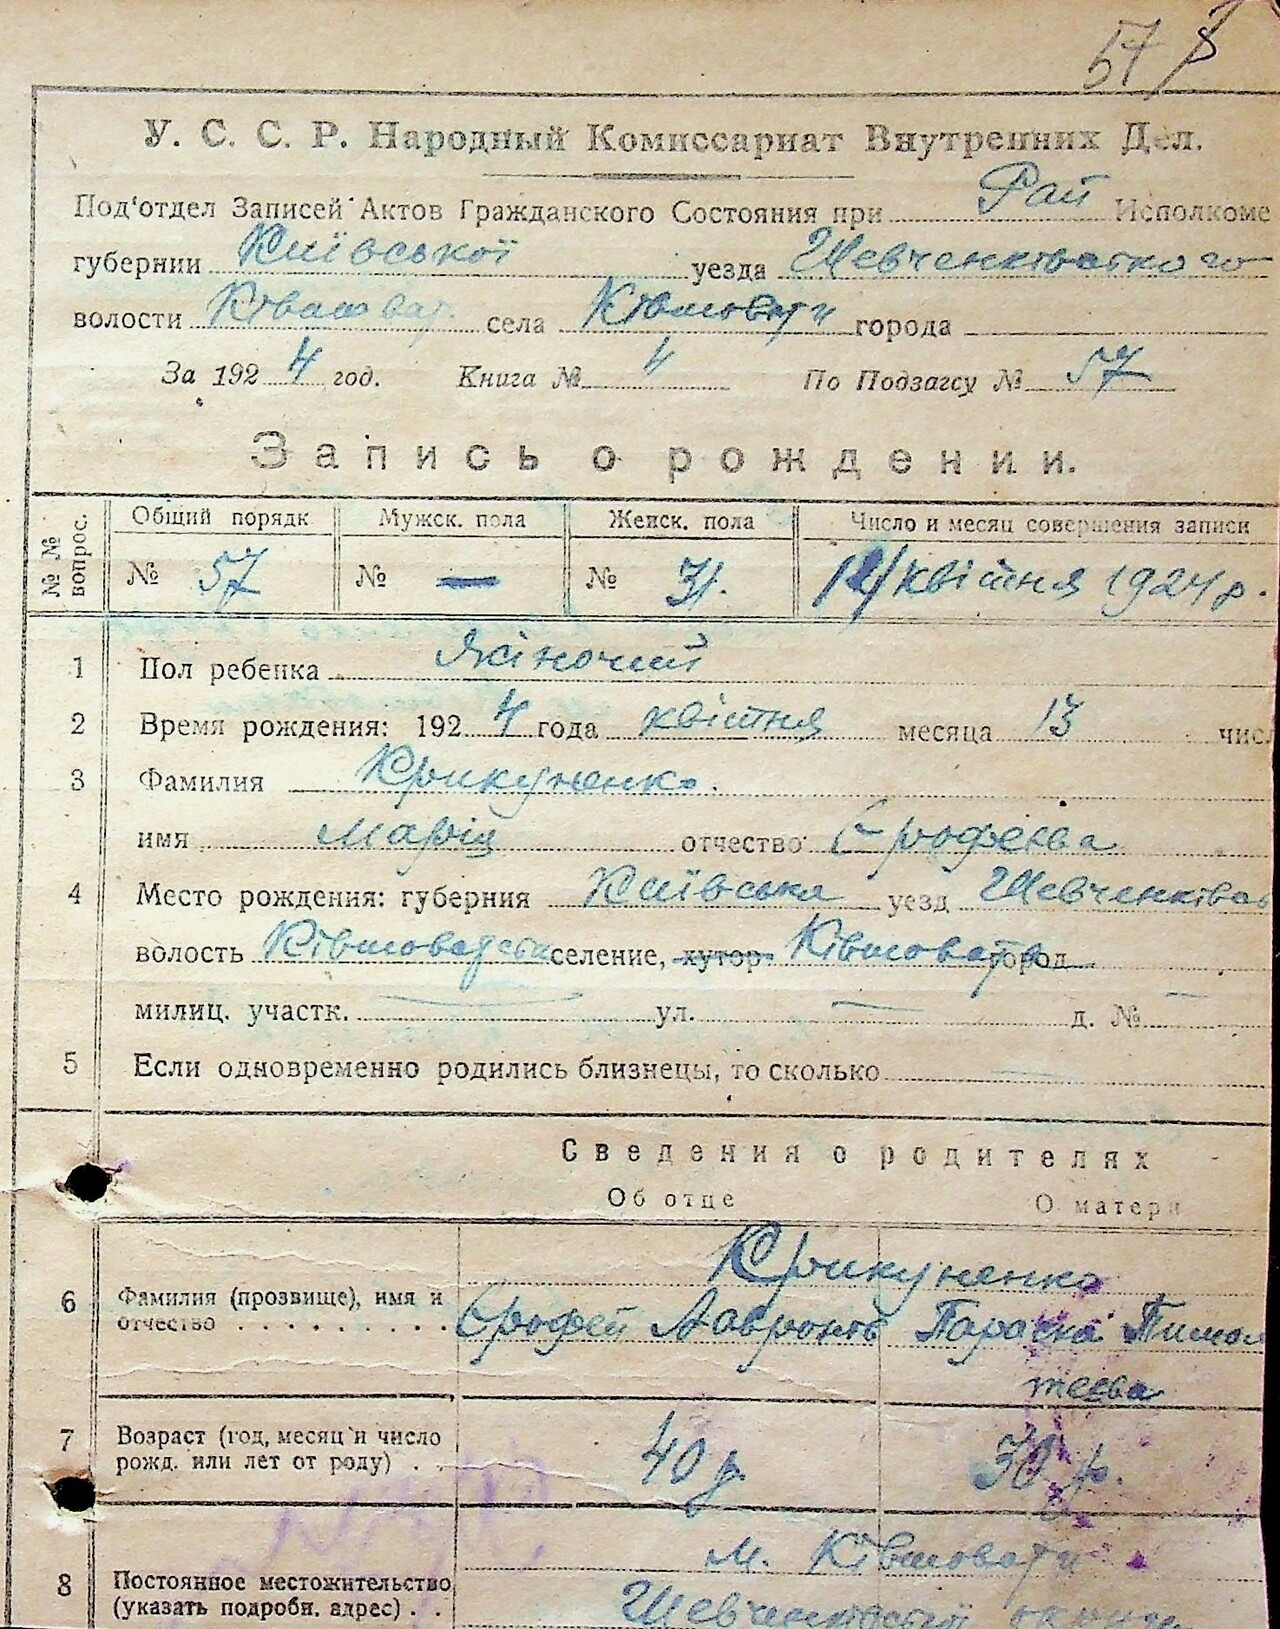 57
У. С. С. Р. Народный Комиссариат Внутренних Дел.
Под'отдел Записей Актов Гражданского Состояния при Рай Исполкоме
губернии Київської уезда Шевченківського
волости Ківшоват. села Ківшовати города
За 1924 год. Книга № По Подзагсу № 57
Запись о рождении.
№ № вопрос.
Общий порядк Мужск. пола Женск. пола Число и месяц совершения записи
№ 57 № — № 31. квітня 1924 р.
1 Пол ребенка Жіночий
2 Время рождения: 1924 года квітня месяца 13 числ
3 Фамилия Крикуненко.
имя Марія отчество Єрофеєва
4 Место рождения: губерния Київська уезд Шевченківсь
волость Ківшоватська селение, хутор Ківшовата город
милиц. участк. — ул. — д. № —
5 Если одновременно родились близнецы, то сколько —
Сведения о родителях
Об отце О матери
Крикуненко
6 Фамилия (прозвище), имя и
отчество . . . . . . . . . Єрофей Лавронтів Параска Тимо
теєва
7 Возраст (год, месяц и число
рожд. или лет от роду) . . 40 р. 30 р.
м. Ківшовати
8 Постоянное местожительство
(указать подробн. адрес) . . Шевченківської округи